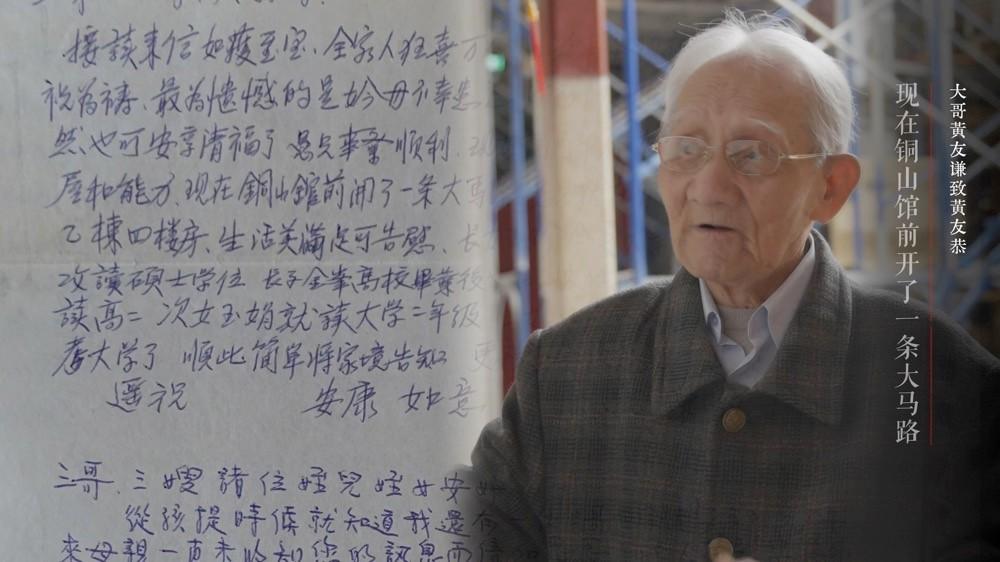 接讀来信如獲至宝、全家人狂喜万
祝為禱、最為遺憾的是母不幸
然也可安享清福了 事業順利、
和能力、现在銅山館前開了一条大馬
乙棟四楼房、生活美滿足可告慰、长
攻讀碩士学位 長子金峯高校畢業後
讀高二 次女玉娟就讀大学二年级
大学了 順此簡单將家境告知
遥祝 安康 如意
三哥、三嫂諸位姪兒姪女安好
從孩提時候就知道我還有
來母親一直未收到您的訊息而
大哥黄友谦致黄友恭
现在铜山馆前开了一条大马路